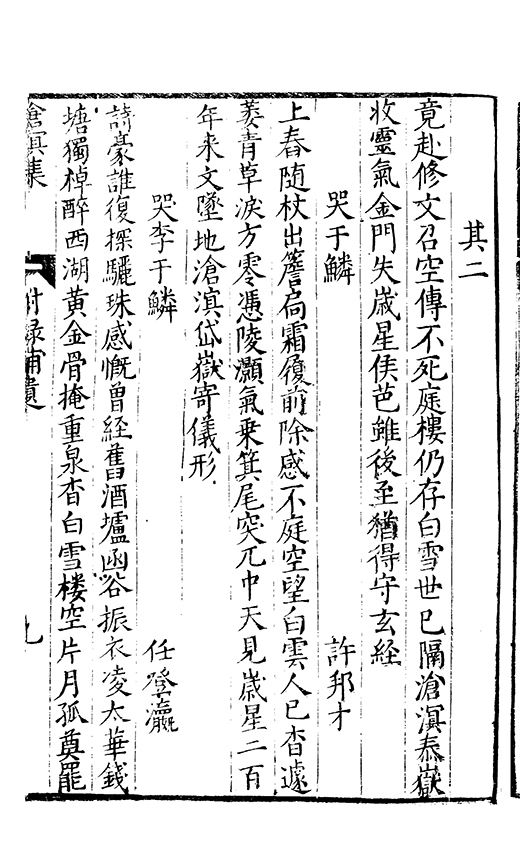 其二
竟赴修文召空傳不死庭樓仍存白雪世已隔滄溟泰嶽
收靈氣金門失歲星侯芭雖後至猶得守玄經
哭于鱗 許邦才
上春随杖出簷扄霜履前除感不庭空望白雲人已杳遽
萎青草淚方零憑陵灝氣乗箕尾突兀中天見歲星二百
年来文墜地滄溟岱嶽寄儀形
哭李于鱗 任登瀛
詩豪誰復探驪珠感慨曾經舊酒壚函谷振衣凌太華錢
塘獨棹醉西湖黄金骨掩重泉杳白雪楼空片月孤奠罷
滄溟集 附録補遺 九